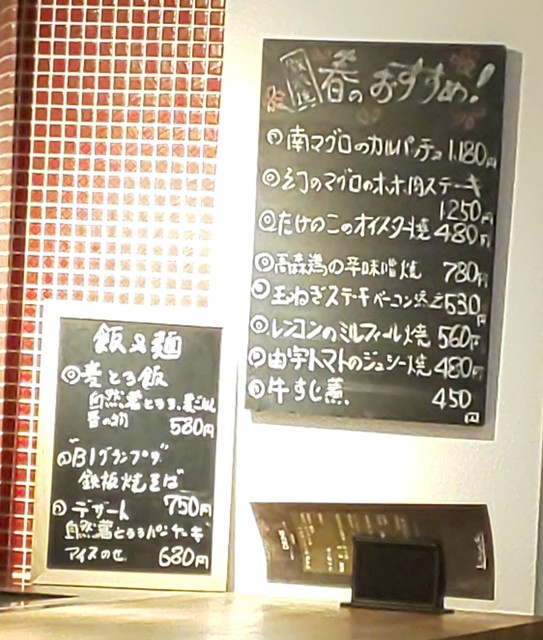 春のおすすめ!
◎南マグロのカルパッチョ 1.180円
◎幻のマグロのホホ肉ステーキ
1250円
◎たけのこのオイスター焼 480円
◎青森鶏の辛味噌焼 780円
◎玉ねぎステーキ ベーコン添え 530円
◎レンコンのミルフィール焼 560円
◎由宇トマトのジューシー焼 480円
◎牛すじ煮 450円
飯&麺
◎麦とろ飯
自然薯とろろ、麦ごはん
580円
◎"B1グランプリ"
鉄板焼そば
750円
◎デザート
自然薯とろろパンケーキ
アイスのせ 680円